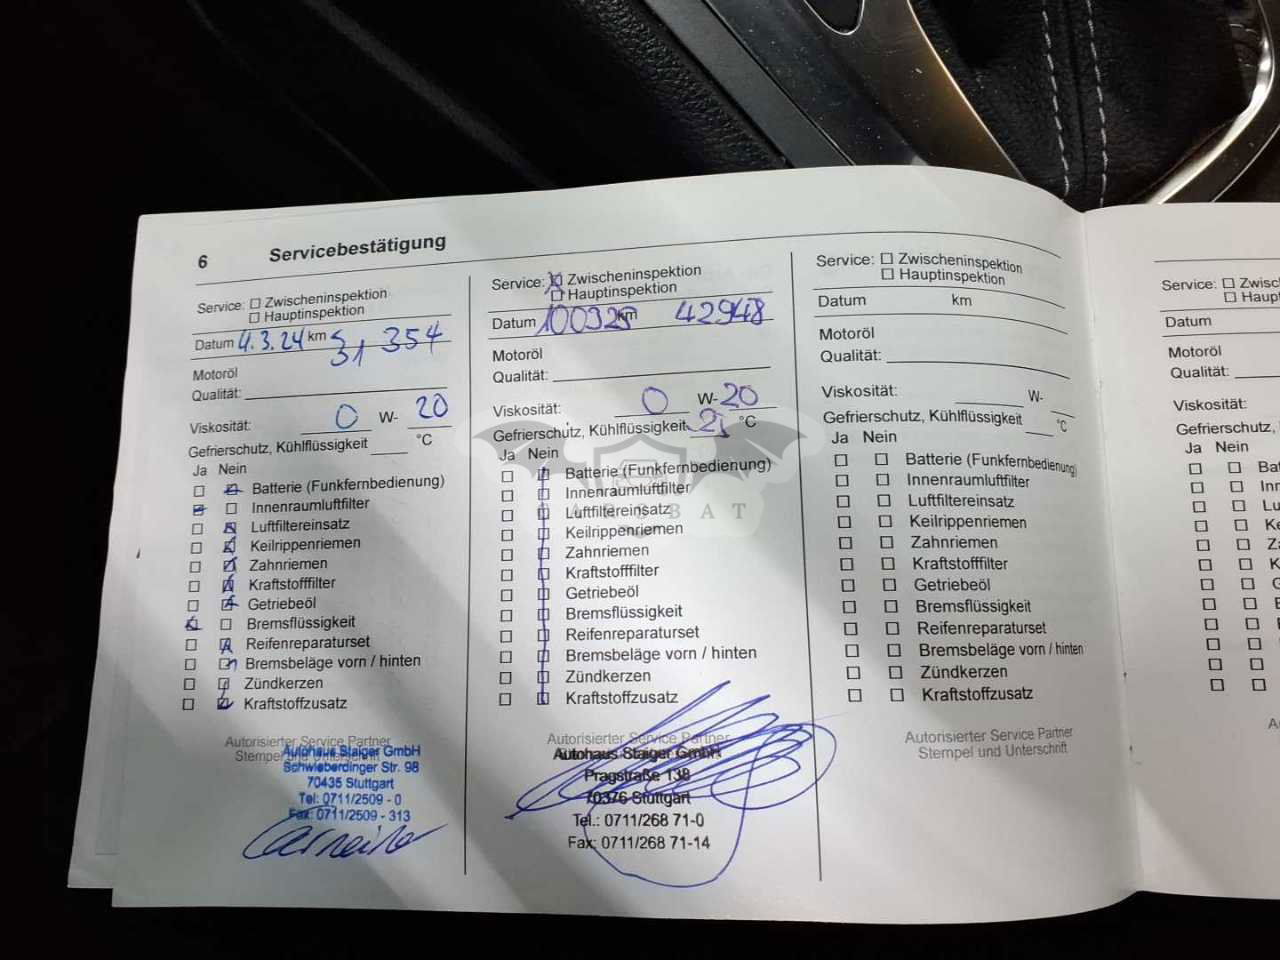 6 Servicebestätigung
Service: Zwischeninspektion
Hauptinspektion
Datum 4.3.24 km 31, 354
Motoröl
Qualität:
Viskosität: 0 W- 20
Gefrierschutz, Kühlflüssigkeit °C
Ja Nein
Batterie (Funkfernbedienung)
Innenraumluftfilter
Luftfiltereinsatz
Keilrippenriemen
Zahnriemen
Kraftstofffilter
Getriebeöl
Bremsflüssigkeit
Reifenreparaturset
Bremsbeläge vorn / hinten
Zündkerzen
Kraftstoffzusatz
Autorisierter Service Partner
Stempel und Unterschrift
Autohaus Staiger GmbH
Schwieberdinger Str. 98
70435 Stuttgart
Tel: 0711/2509 - 0
Fax: 0711/2509 - 313
Service: Zwischeninspektion
Hauptinspektion
Datum 100325 km 42948
Motoröl
Qualität:
Viskosität: 0 W- 20
Gefrierschutz, Kühlflüssigkeit °C
Ja Nein
Batterie (Funkfernbedienung)
Innenraumluftfilter
Luftfiltereinsatz
Keilrippenriemen
Zahnriemen
Kraftstofffilter
Getriebeöl
Bremsflüssigkeit
Reifenreparaturset
Bremsbeläge vorn / hinten
Zündkerzen
Kraftstoffzusatz
Autorisierter Service Partner
Autohaus Staiger GmbH
Pragstraße 138
70376 Stuttgart
Tel.: 0711/268 71-0
Fax: 0711/268 71-14
Service: Zwischeninspektion
Hauptinspektion
Datum km
Motoröl
Qualität:
Viskosität: W-
Gefrierschutz, Kühlflüssigkeit °C
Ja Nein
Batterie (Funkfernbedienung)
Innenraumluftfilter
Luftfiltereinsatz
Keilrippenriemen
Zahnriemen
Kraftstofffilter
Getriebeöl
Bremsflüssigkeit
Reifenreparaturset
Bremsbeläge vorn / hinten
Zündkerzen
Kraftstoffzusatz
Autorisierter Service Partner
Stempel und Unterschrift
Service: Zwisc
Haup
Datum
Motoröl
Qualität:
Viskosität:
Gefrierschutz,
Ja Nein